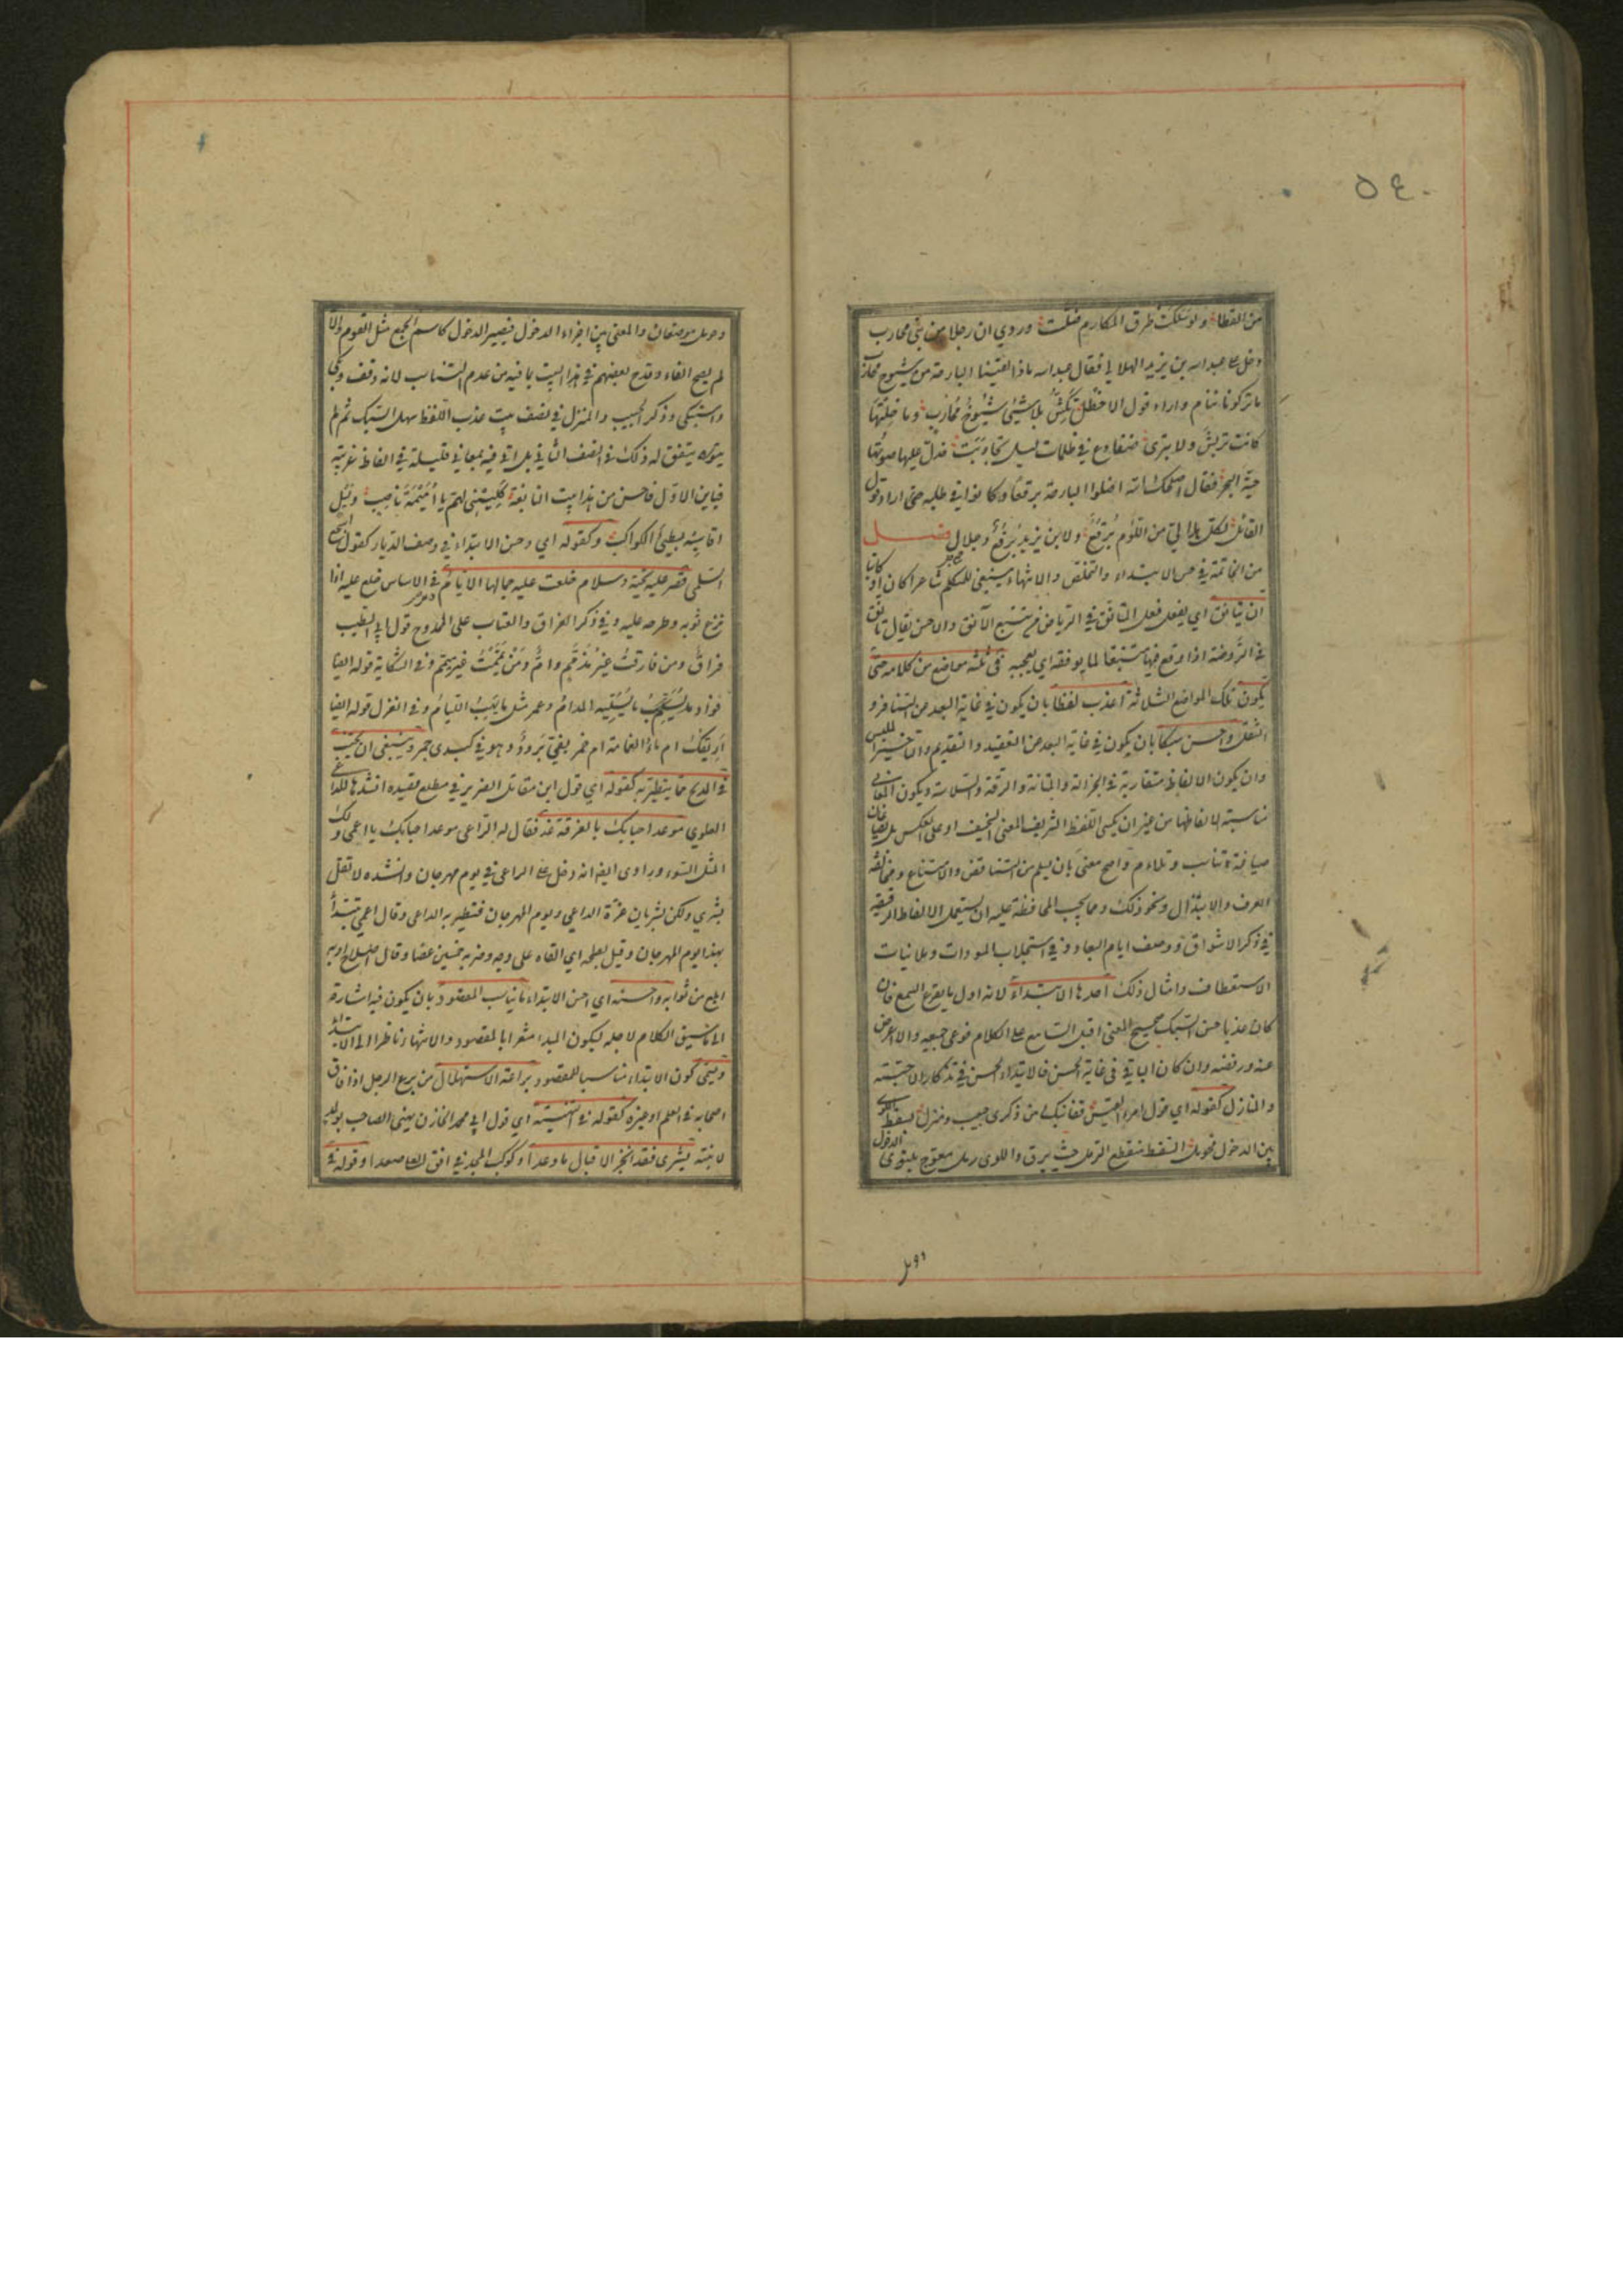 ٥٤٠
من القطا ولو سلكت طرق المكارم ضلت وروي ان رجلا من بني محارب
دخل على عبد الله بن يزيد الهلالي فقال عبد الله ماذا لقينا البارحة من شيوخ محارب
ما تركونا ننام واراد قول الاخطل تكش بلا شيئ شيوخ محارب وما خلتها
كانت تريش ولا تبرى ضفادع في ظلمات ليل تجاوبت فدل عليها صوتها
حية البحر فقال اصلحك الله اضلوا البارحة برقعا وكانوا في طلبه حتى اراد قول
القائل لكل هلالي من اللؤم برقع ولابن يزيد برقع وجلال فصل
من الخاتمة في حسن الابتداء والتخلص والانتهاء ينبغي للمتكلم شاعرا كان او كاتبا
ان يتانق اي يفعل فعل المتانق في الرياض من تتبع الآنق والاحسن يقال تانق
في الروضة اذا وقع فيها متتبعا لما يونقه اي يعجبه في ثلثة مواضع من كلامه حتى
يكون تلك المواضع الثلاثة اعذب لفظا بان يكون في غاية البعد من التنافر و
الثقل واحسن سبكا بان يكون في غاية البعد من التعقيد والتقديم والتاخير الملبس
وان يكون الالفاظ متقاربة في الجزالة والمتانة والرقة والسلاسة ويكون المعاني
مناسبة لالفاظها من غير ان يكسى اللفظ الشريف المعنى السخيف او على العكس بل يصاغان
صياغة تناسب وتلاءم واصح معنى بان يسلم من التناقض والامتناع ومخالفة
العرف والابتذال ونحو ذلك ومما يجب المحافظة عليه ان يستعمل الالفاظ الرقيقة
في ذكر الاشواق ووصف ايام البعاد وفي استجلاب المودات وملاينات
الاستعطاف وامثال ذلك احدها الابتداء لانه اول ما يقرع السمع فان
كان عذبا حسن السبك صحيح المعنى اقبل السامع على الكلام فوعى جميعه والا اعرض
عنه ورفضه وان كان الباقي في غاية الحسن فالابتداء الحسن في تذكار الاحبة
والمنازل كقوله اي قول امرء القيس قفا نبك من ذكرى حبيب ومنزل بسقط اللوى
بين الدخول فحومل السقط منقطع الرمل حيث يرق واللوى رمل معوج يلتوي الدخول
وحومل
وحومل موضعان والمعنى بين اجزاء الدخول فيصير الدخول كاسم الجمع مثل القوم والا
لم يصح الفاء وقدح بعضهم في هذا البيت بما فيه من عدم التناسب لانه وقف وبكى
واستبكى وذكر الحبيب والمنزل في نصف بيت عذب اللفظ سهل السبك ثم لم
يتفق له ذلك في النصف الثاني بل اتى فيه بمعاني قليلة في الفاظ غريبة
فباين الاول فاحسن من هذا بيت النابغة كليني لهم يا اميمة ناصب وليل
اقاسيه بطيئ الكواكب وكقوله اي وحسن الابتداء في وصف الديار كقول اشجع
السلمي قصر عليه تحية وسلام خلعت عليه جمالها الايام في الاساس خلع عليه اذا
نزع ثوبه وطرحه عليه وفي ذكر الفراق والعتاب على الممدوح قول ابي الطيب
فراق ومن فارقت غير مذمم وام ومن يممت غير ميمم وفي الشكاية قوله ايضا
فؤاد ما يسليه المدام وعمر مثل ما يهب اللئام وفي الغزل قوله ايضا
اريقك ام ماؤ الغمامة ام خمر بفي برود وهو في كبدي جمر وينبغي ان يجتنب
في المديح مما يتطير به كقوله اي قول ابن مقاتل الضرير في مطلع قصيدة انشدها للداعي
العلوي موعد احبابك بالفرقة غد فقال له الداعي موعد احبابك يا اعمى ولك
المثل السوء وروى ايضا انه دخل على الداعي في يوم مهرجان وانشده لا تقل
بشرى ولكن بشريان غرة الداعي ويوم المهرجان فتطير به الداعي وقال اعمى تبتدأ
بهذا يوم المهرجان وقيل بطحه اي القاه على وجهه وضربه خمسين عصا وقال اصلاح ادبه
ابلغ من ثوابه واحسنه اي احسن الابتداء ما يناسب المقصود بان يكون فيه اشارة
الى ما سيق الكلام لاجله ليكون المبدا مشعرا بالمقصود والانتهاء ناظرا الى الابتداء
ويسمى كون الابتداء مناسبا للمقصود براعة الاستهلال من برع الرجل اذا فاق
اصحابه في العلم او غيره كقوله في التهنية اي قول ابي محمد الخازن يهني الصاحب بولد
لابنته بشرى فقد انجز الاقبال ما وعدا وكوكب المجد في افق العلا صعدا وقوله في